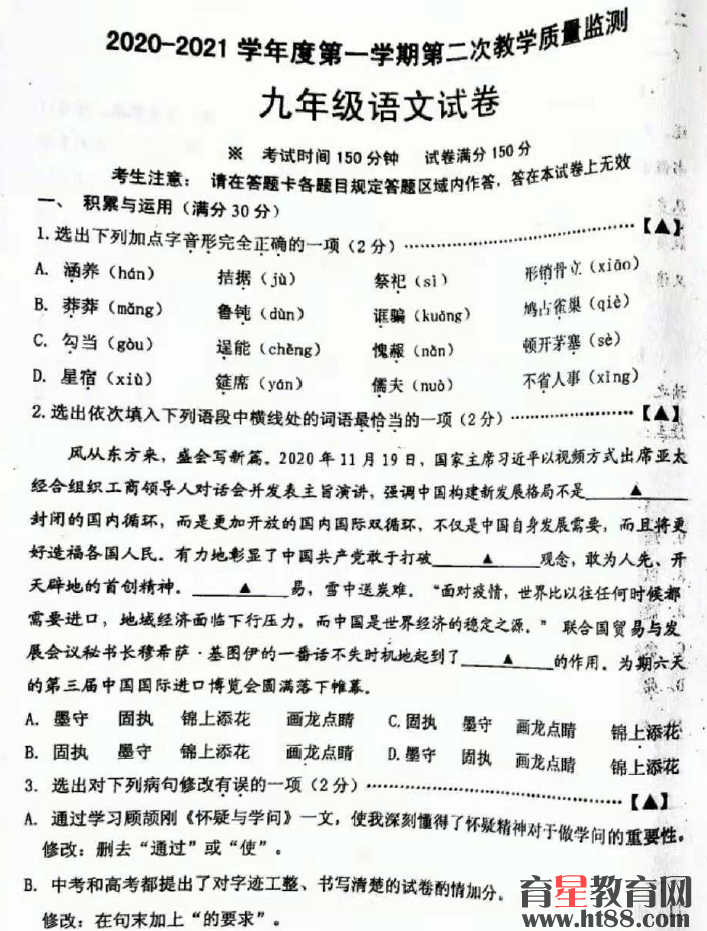 2020-2021 学年度第一学期第二次教学质量监测
九年级语文试卷
※ 考试时间 150 分钟 试卷满分 150 分
考生注意： 请在答题卡各题目规定答题区域内作答，答在本试卷上无效
一、 积累与运用（满分 30 分）
1.选出下列加点字音形完全正确的一项（2 分）……………………………【▲】
A. 涵养（hán） 拮据（jù） 祭祀（sì） 形销骨立（xiāo）
B. 莽莽（mǎng） 鲁钝（dùn） 诓骗（kuāng） 鸠占雀巢（qiè）
C. 勾当（gòu） 逞能（chěng） 愧赧（nǎn） 顿开茅塞（sè）
D. 星宿（xiù） 筵席（yán） 懦夫（nuò） 不省人事（xǐng）
2.选出依次填入下列语段中横线处的词语最恰当的一项（2 分）………………【▲】
风从东方来，盛会写新篇。2020 年 11 月 19 日，国家主席习近平以视频方式出席亚太
经合组织工商领导人对话会并发表主旨演讲，强调中国构建新发展格局不是____▲____
封闭的国内循环，而是更加开放的国内国际双循环，不仅是中国自身发展需要，而且将更
好造福各国人民。有力地彰显了中国共产党敢于打破____▲____观念，敢为人先、开
天辟地的首创精神。____▲____易，雪中送炭难。“面对疫情，世界比以往任何时候都
需要进口，地域经济面临下行压力。而中国是世界经济的稳定之源。” 联合国贸易与发
展会议秘书长穆希萨·基图伊的一番话不失时机地起到了____▲____的作用。为期六天
的第三届中国国际进口博览会圆满落下帷幕。
A. 墨守 固执 锦上添花 画龙点睛 C.固执 墨守 画龙点睛 锦上添花
B. 固执 墨守 锦上添花 画龙点睛 D.墨守 固执 画龙点睛 锦上添花
3. 选出对下列病句修改有误的一项（2 分）……………………………………【▲】
A. 通过学习顾颉刚《怀疑与学问》一文，使我深刻懂得了怀疑精神对于做学问的重要性。
修改：删去“通过”或“使”。
B. 中考和高考都提出了对字迹工整、书写清楚的试卷酌情加分。
修改：在句末加上“的要求”。
育星教育网
www.ht88.com